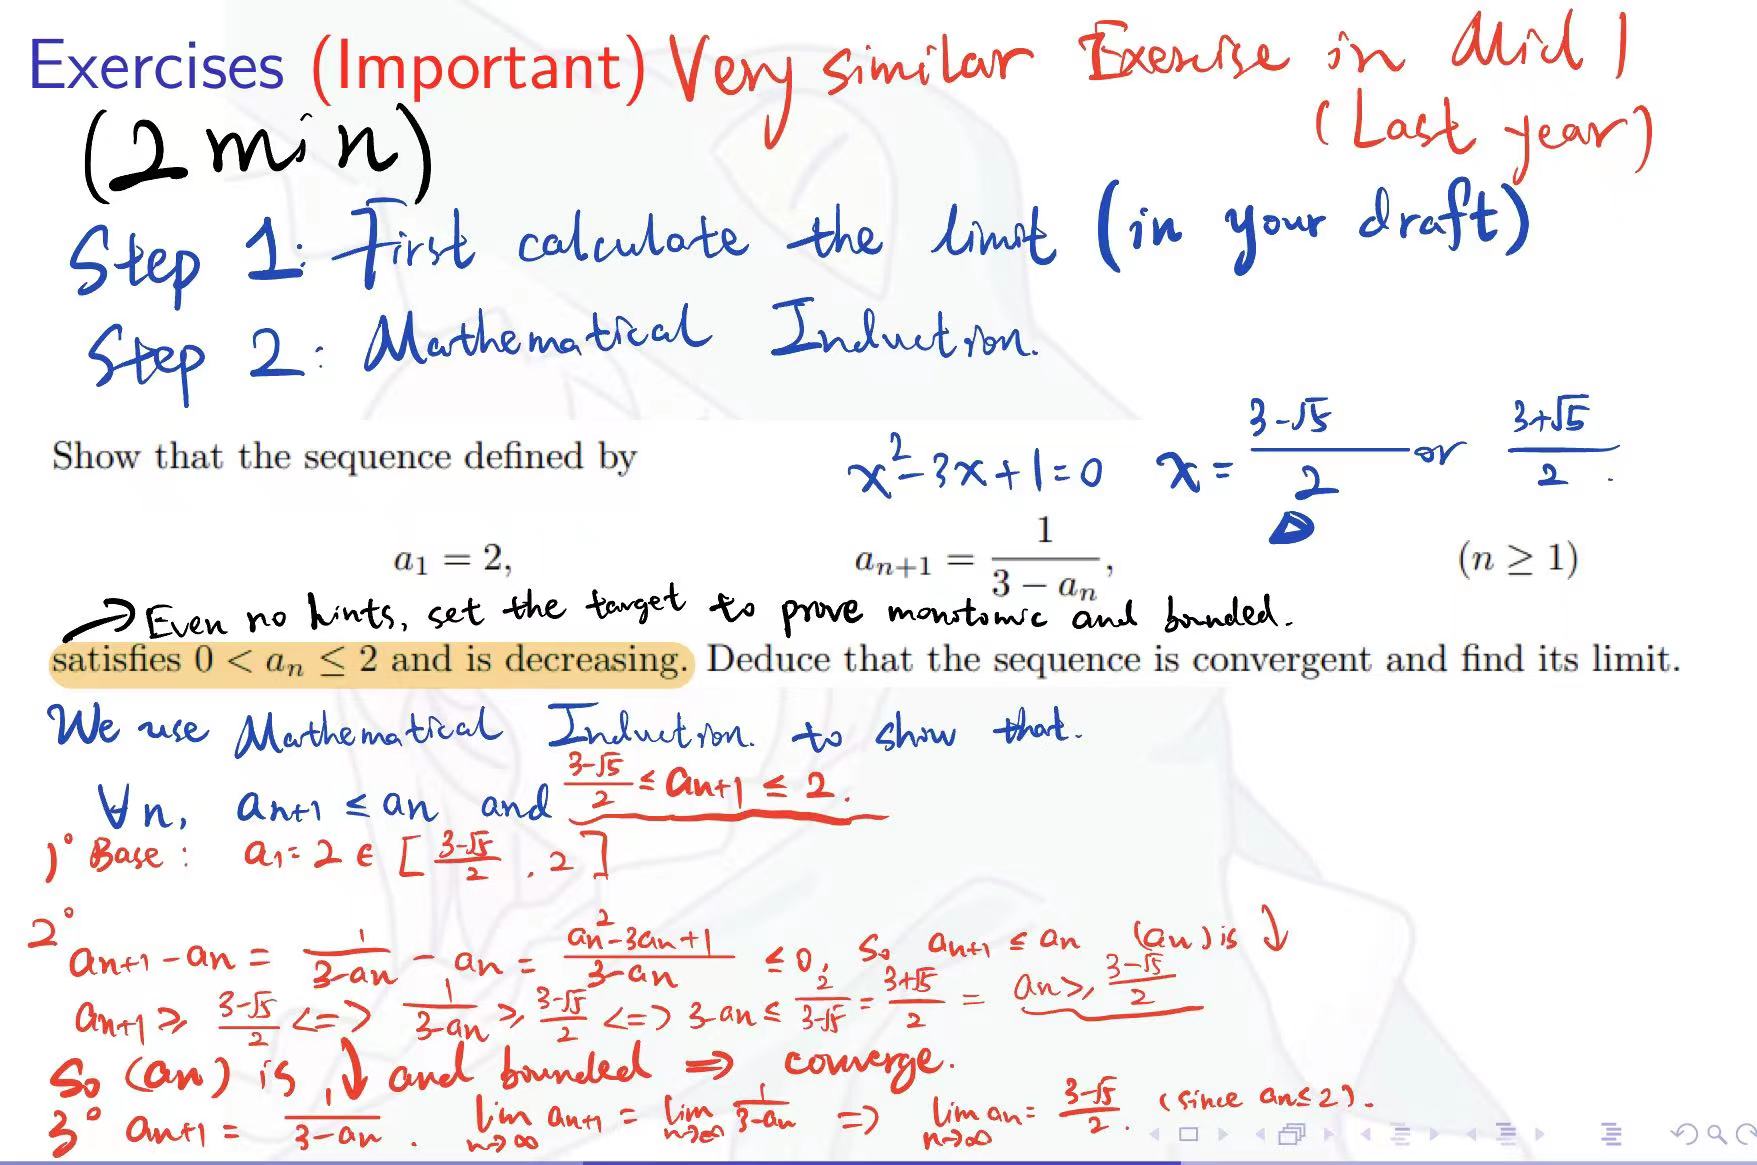 Exercises (Important) Very similar Exercise in Mid 1
(Last year)
(2 min)
Step 1: First calculate the limit (in your draft)
Step 2: Mathematical Induction.
Show that the sequence defined by
x²-3x+1=0 x = (3-√5)/2 or (3+√5)/2.
a₁ = 2, aₙ₊₁ = 1/(3 − aₙ), (n ≥ 1)
→ Even no hints, set the target to prove monotonic and bounded.
satisfies 0 < aₙ ≤ 2 and is decreasing. Deduce that the sequence is convergent and find its limit.
We use Mathematical Induction. to show that.
∀n, aₙ₊₁ ≤ aₙ and (3-√5)/2 ≤ aₙ₊₁ ≤ 2.
1° Base: a₁=2 ∈ [(3-√5)/2, 2]
2° aₙ₊₁-aₙ = 1/(3-aₙ) - aₙ = (aₙ²-3aₙ+1)/(3-aₙ) ≤0, So aₙ₊₁ ≤ aₙ (aₙ) is ↓
aₙ₊₁ ≥ (3-√5)/2 <=> 1/(3-aₙ) ≥ (3-√5)/2 <=> 3-aₙ ≤ 2/(3-√5) = (3+√5)/2 = aₙ ≥ (3-√5)/2
So (aₙ) is ↓ and bounded ⇒ converge.
3° aₙ₊₁ = 1/(3-aₙ). lim n→∞ aₙ₊₁ = lim n→∞ 1/(3-aₙ) => lim n→∞ aₙ = (3-√5)/2. (since aₙ≤2).